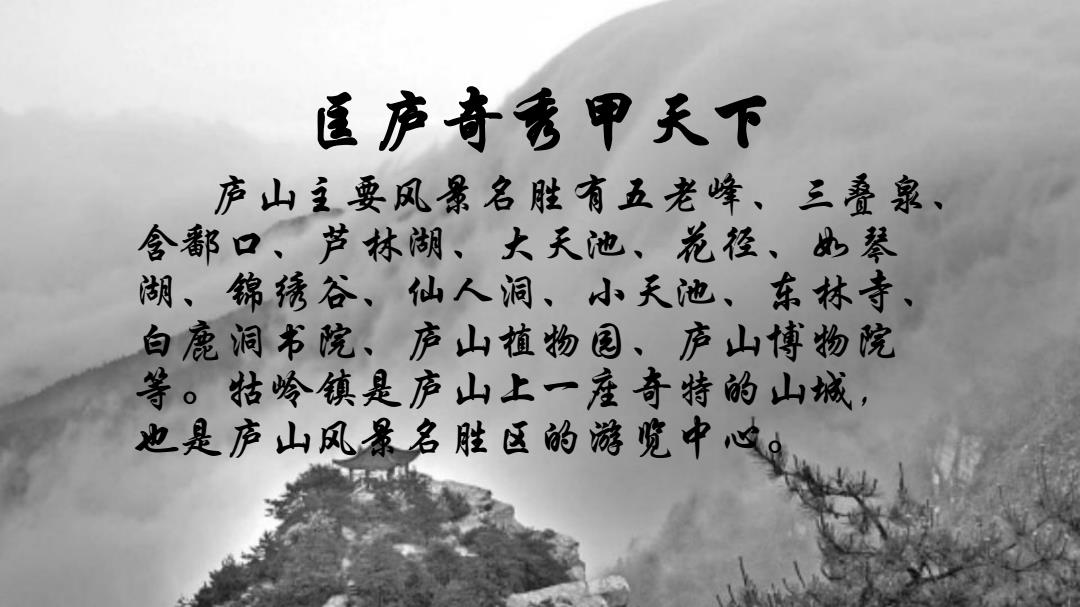 匡庐奇秀甲天下
庐山主要风景名胜有五老峰、三叠泉、
含鄱口、芦林湖、大天池、花径、如琴
湖、锦绣谷、仙人洞、小天池、东林寺、
白鹿洞书院、庐山植物园、庐山博物院
等。牯岭镇是庐山上一座奇特的山城，
也是庐山风景名胜区的游览中心。